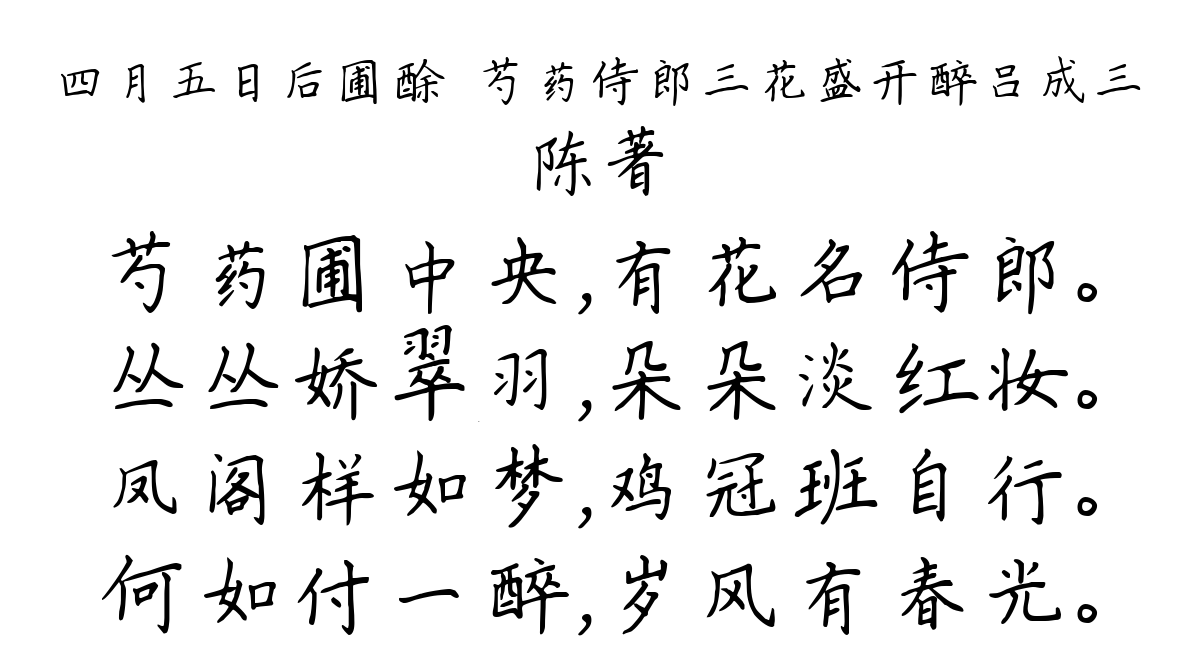 四月五日后圃酴 芍药侍郎三花盛开醉吕成三
陈著
芍药圃中央,有花名侍郎。
丛丛娇翠羽,朵朵淡红妆。
凤阁样如梦,鸡冠班自行。
何如付一醉,岁风有春光。